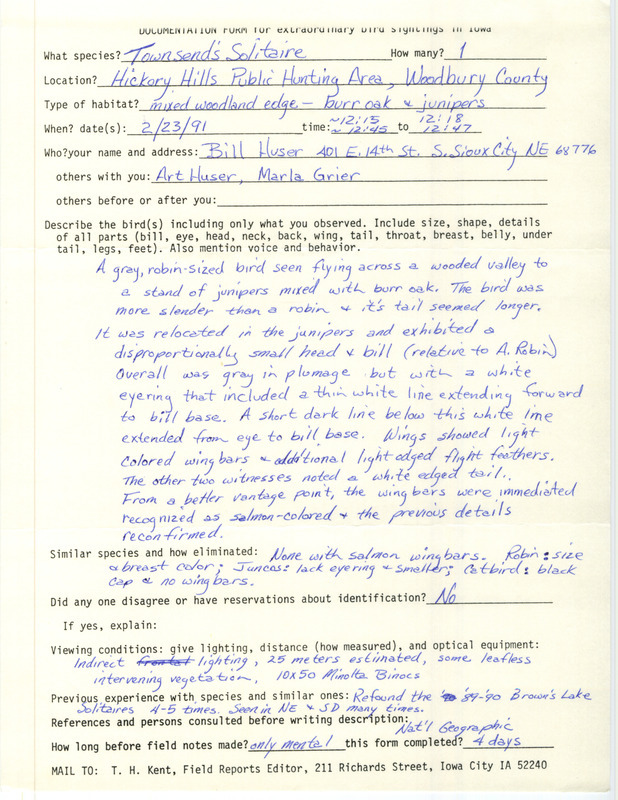 DOCUMENTATION FORM for extraordinary bird sightings in Iowa
What species? Townsend's Solitaire How many? 1
Location? Hickory Hills Public Hunting Area, Woodbury County
Type of habitat? mixed woodland edge - burr oak & junipers
When? date(s): 2/23/91 time: ~12:15 to 12:18
~12:45 12:47
Who? your name and address: Bill Huser 401 E. 14th St. S. Sioux City NE 68776
others with you: Art Huser, Marla Grier
others before or after you:
Describe the bird(s) including only what you observed. Include size, shape, details
of all parts (bill, eye, head, neck, back, wing, tail, throat, breast, belly, under
tail, legs, feet). Also mention voice and behavior.
A gray, robin-sized bird seen flying across a wooded valley to
a stand of junipers mixed with burr oak. The bird was
more slender than a robin & it's tail seemed longer.
It was relocated in the junipers and exhibited a
disproportionally small head & bill (relative to A. Robin)
Overall was gray in plumage but with a white
eyering that included a thin white line extending forward
to bill base. A short dark line below this white line
extended from eye to bill base. Wings showed light
colored wingbars & additional light edged flight feathers.
The other two witnesses noted a white edged tail.
From a better vantage point, the wing bars were immediated
recognized as salmon-colored & the previous details
reconfirmed.
Similar species and how eliminated: None with salmon wingbars. Robin: size
& breast color; Juncos: lack eyering & smaller; Catbird: black
cap & no wingbars.
Did any one disagree or have reservations about identification? No
If yes, explain:
Viewing conditions: give lighting, distance (how measured), and optical equipment:
Indirect frontal lighting, 25 meters estimated, some leafless
intervening vegetation, 10x50 Minolta Binocs
Previous experience with species and similar ones: Refound the '89-'90 Brown's Lake
Solitaires 4-5 times. Seen in NE & SD many times.
References and persons consulted before writing description:
Nat'l Geographic
How long before field notes made? only mental this form completed? 4 days
MAIL TO: T. H. Kent, Field Reports Editor, 211 Richards Street, Iowa City IA 52240